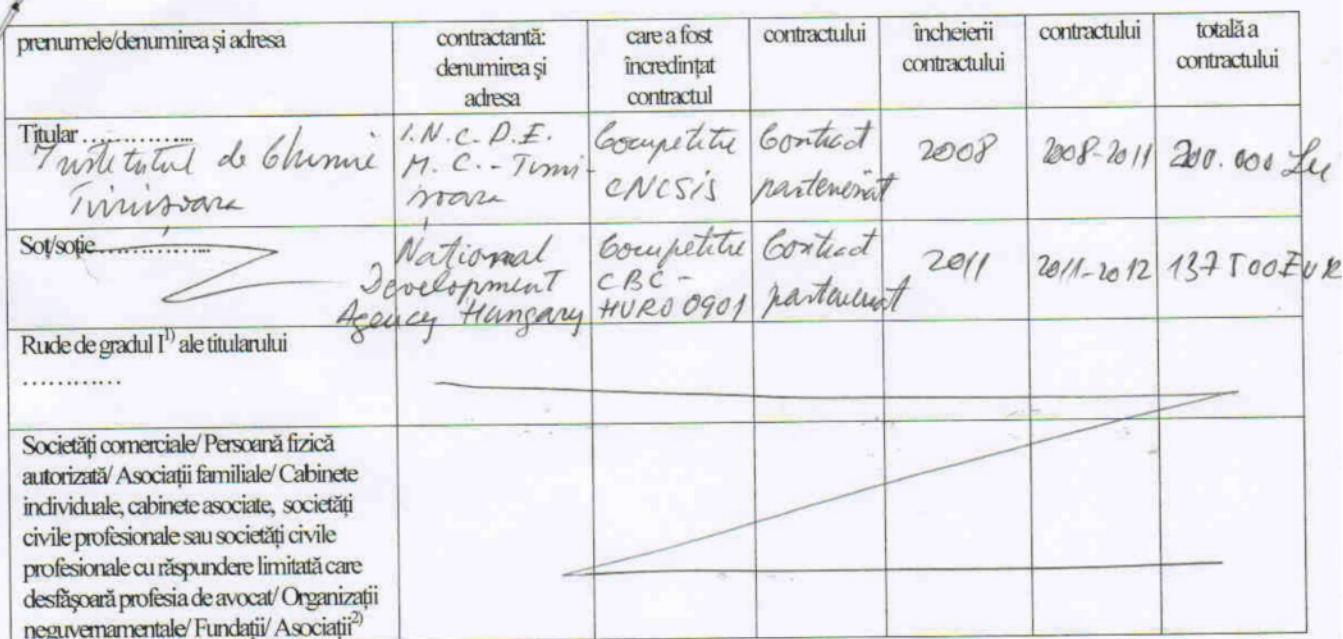 prenumele/denumirea și adresa
contractantă:
denumirea și
adresa
care a fost
încredințat
contractul
contractului
încheierii
contractului
contractului
totală a
contractului
Titular ……………...
Institutul de Chimie
Timișoara
I.N.C.D.E.
M.C. - Timi-
șoara
Competiție
CNCSIS
Contract
parteneriat
2008
2008-2011
200.000 Lei
Soț/soție……………...
National
Development
Agency Hungary
Competiție
CBC -
HURO 0901
Contract
parteneriat
2011
2011-2012
137500 EUR
Rude de gradul I¹⁾ ale titularului
…………
Societăți comerciale/ Persoană fizică
autorizată/ Asociații familiale/ Cabinete
individuale, cabinete asociate, societăți
civile profesionale sau societăți civile
profesionale cu răspundere limitată care
desfășoară profesia de avocat/ Organizații
neguvernamentale/ Fundații/ Asociații²⁾